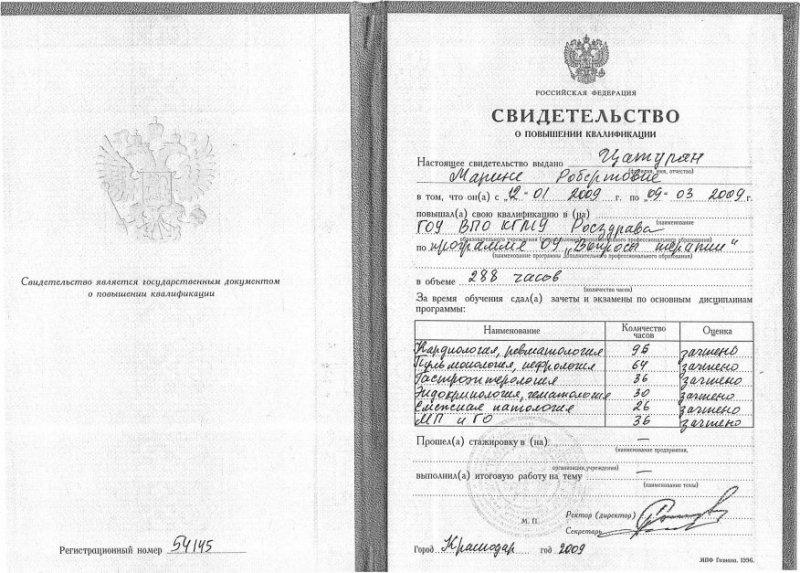 Свидетельство является государственным документом
о повышении квалификации
Регистрационный номер 54145
РОССИЙСКАЯ ФЕДЕРАЦИЯ
СВИДЕТЕЛЬСТВО
О ПОВЫШЕНИИ КВАЛИФИКАЦИИ
Настоящее свидетельство выдано Цатурян
(фамилия, имя, отчество)
Марине Робертовне
в том, что он(а) с „12-01 2009 г. по „09-03 2009 г.
повышал(а) свою квалификацию в (на)
(наименование
ГОУ ВПО КГМУ Росздрава
образовательного учреждения (подразделения) дополнительного профессионального образования)
по программе ОУ „Вопросы терапии"
(наименование программы дополнительного профессионального образования)
в объеме 288 часов
(количество часов)
За время обучения сдал(а) зачеты и экзамены по основным дисциплинам
программы:
Наименование Количество часов Оценка
Кардиология, ревматология 96 зачтено
Пульмонология, нефрология 64 зачтено
Гастроэнтерология 36 зачтено
Эндокринология, гематология 30 зачтено
Смежная патология 26 зачтено
МП и ГО 36 зачтено
Прошел(а) стажировку в (на) —
(наименование предприятия,
организации, учреждения)
выполнил(а) итоговую работу на тему —
(наименование темы)
Ректор (директор)
М. П.
Секретарь
Город Краснодар год 2009
МПФ Гознака. 1996.